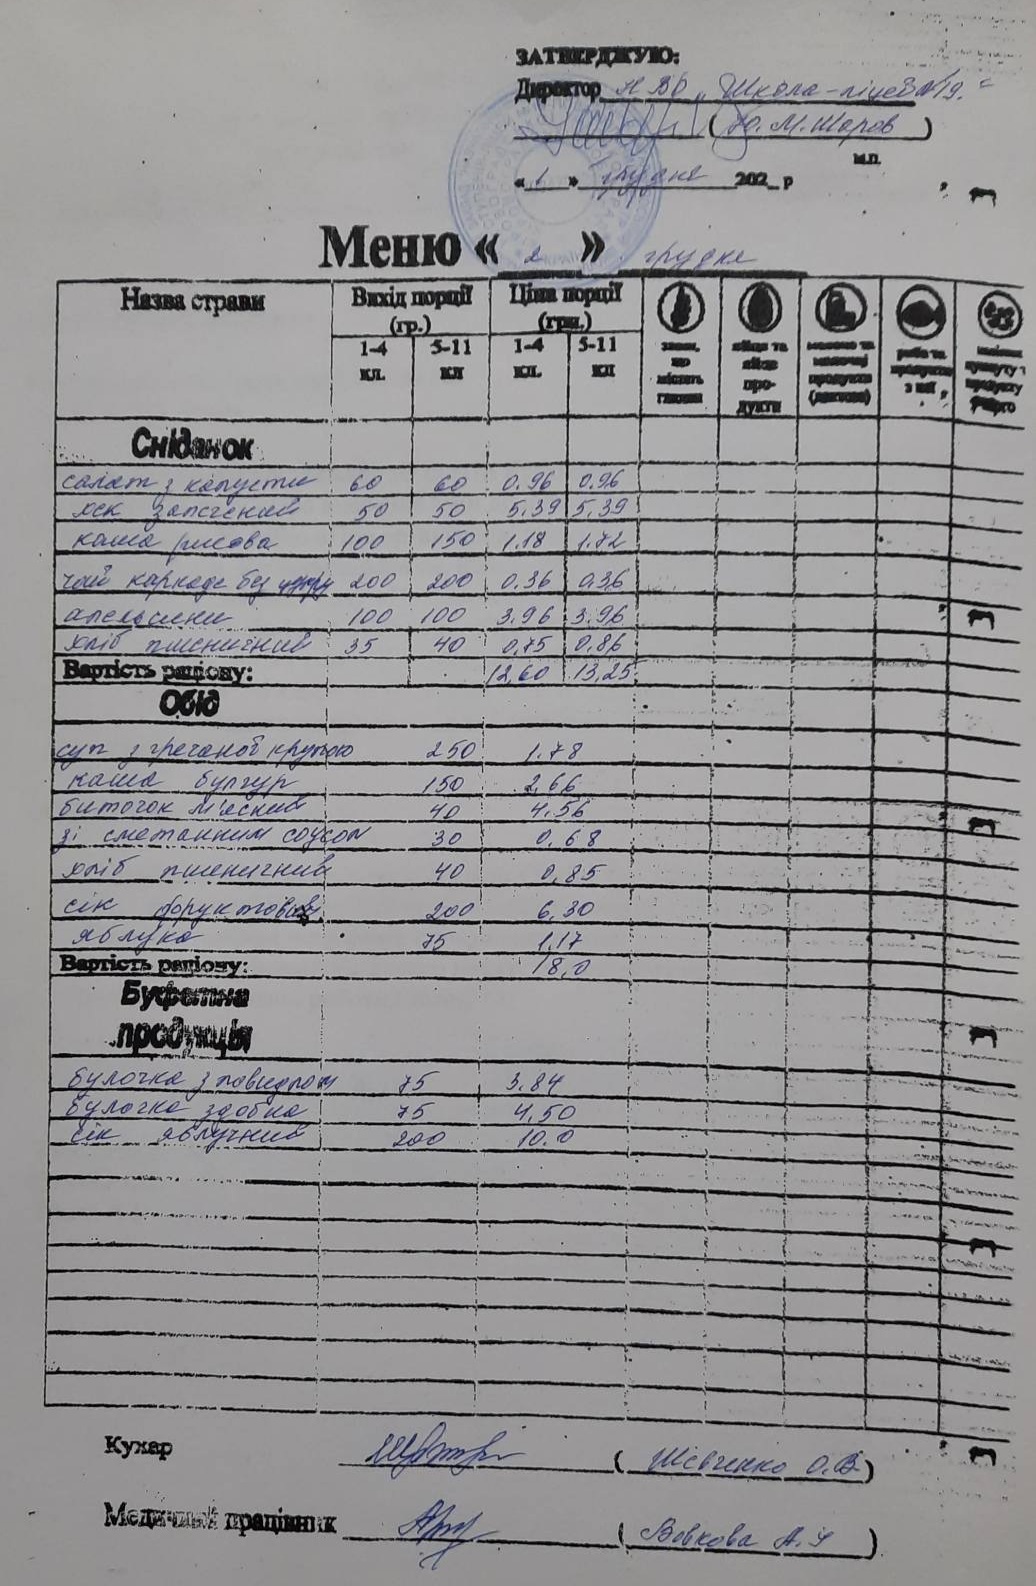 ЗАТВЕРДЖУЮ:
Директор НВО „Школа-ліцей №19"
(Ю.М.Шаров)
м.п.
«1» грудня 202_ р
Меню « 2 » грудня
Назва страви Вихід порції (гр.) Ціна порції (грн.)
1-4 кл. 5-11 кл 1-4 кл. 5-11 кл
злаки, що містять глютен яйця та яйце про-дукти молоко та молочні продукти (лактоза) риба та продукти з неї
Сніданок
салат з капусти 60 60 0.96 0.96
хек запечений 50 50 5,39 5,39
каша рисова 100 150 1.18 1.72
чай каркаде без цукру 200 200 0.36 0.36
апельсини 100 100 3,96 3,96
хліб пшеничний 35 40 0,75 0,86
Вартість раціону: 12,60 13,25
Обід
суп з гречаної крупою 250 1.78
каша булгур 150 2,66
биточок м'ясний 40 4.56
зі сметанним соусом 30 0,68
хліб пшеничний 40 0,85
сік фруктовий 200 6,30
яблука 75 1,17
Вартість раціону: 18,0
Буфетна
продукція
булочка з повидлом 75 3.84
булочка здобна 75 4,50
сік яблучний 200 10.0
Кухар (Шевченко О.В.)
Медичний працівник (Вовкова А.)